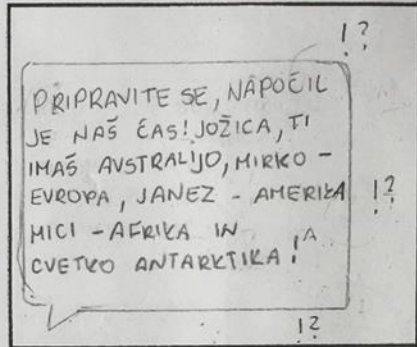 !?
PRIPRAVITE SE, NAPOČIL
JE NAŠ ČAS! JOŽICA, TI
IMAŠ AVSTRALIJO, MIRKO -
EVROPA, JANEZ - AMERIKA !?
MICI - AFRIKA IN
CVETKO ANTARKTIKA! A
!?